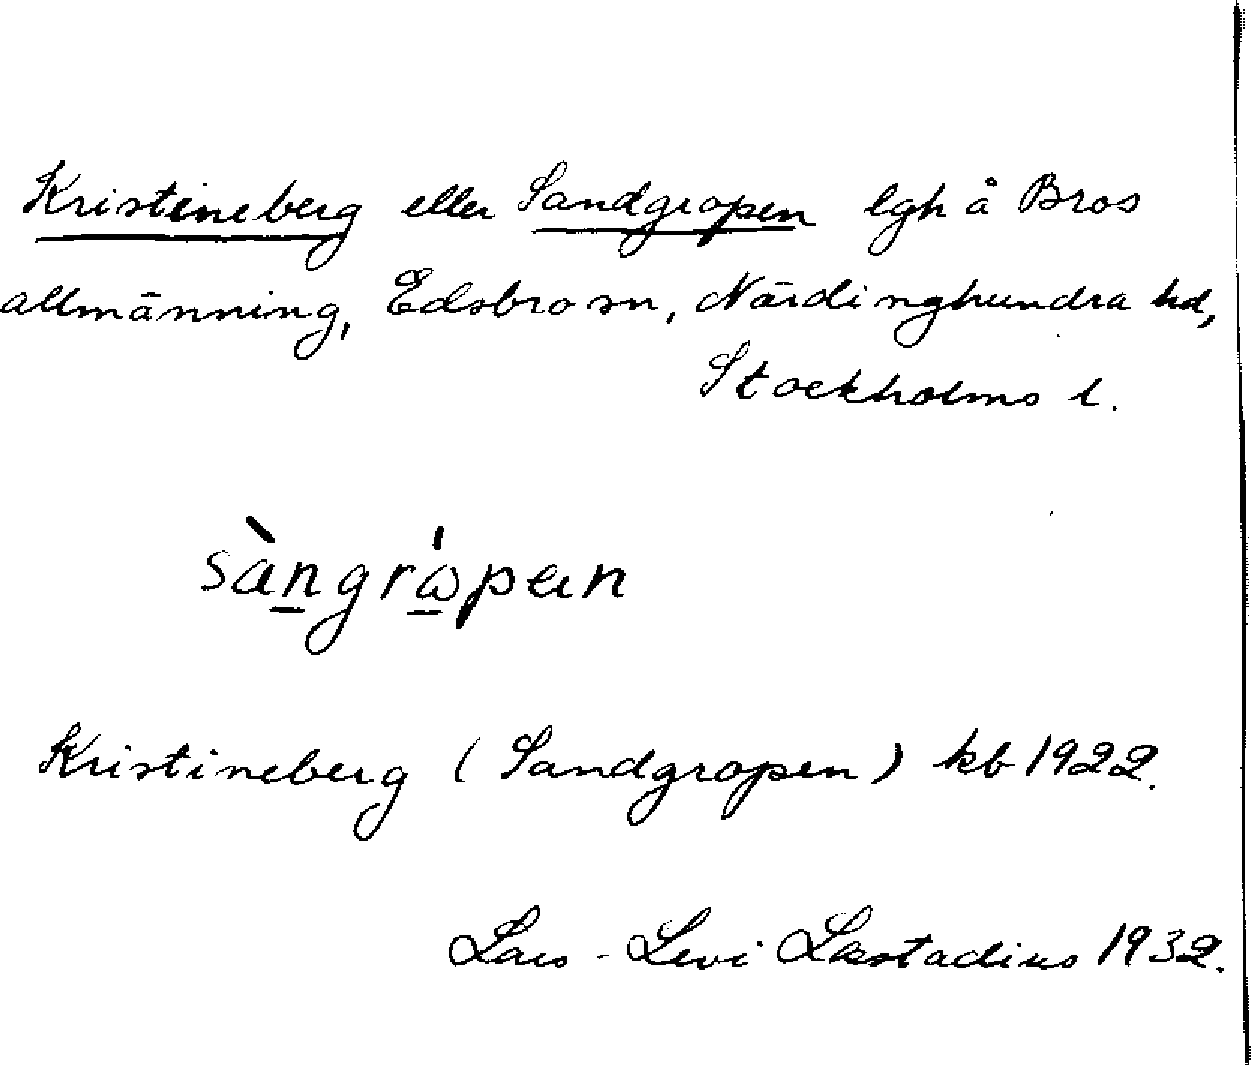 Kristineberg eller Sandgropen lgh å Bros
allmänning, Edsbro sn, Närdinghundra hd,
Stockholms l.
sàn̲grώ̲pan
Kristineberg (Sandgropen) kb 1922.
Lars-Levi Læstadius 1932.